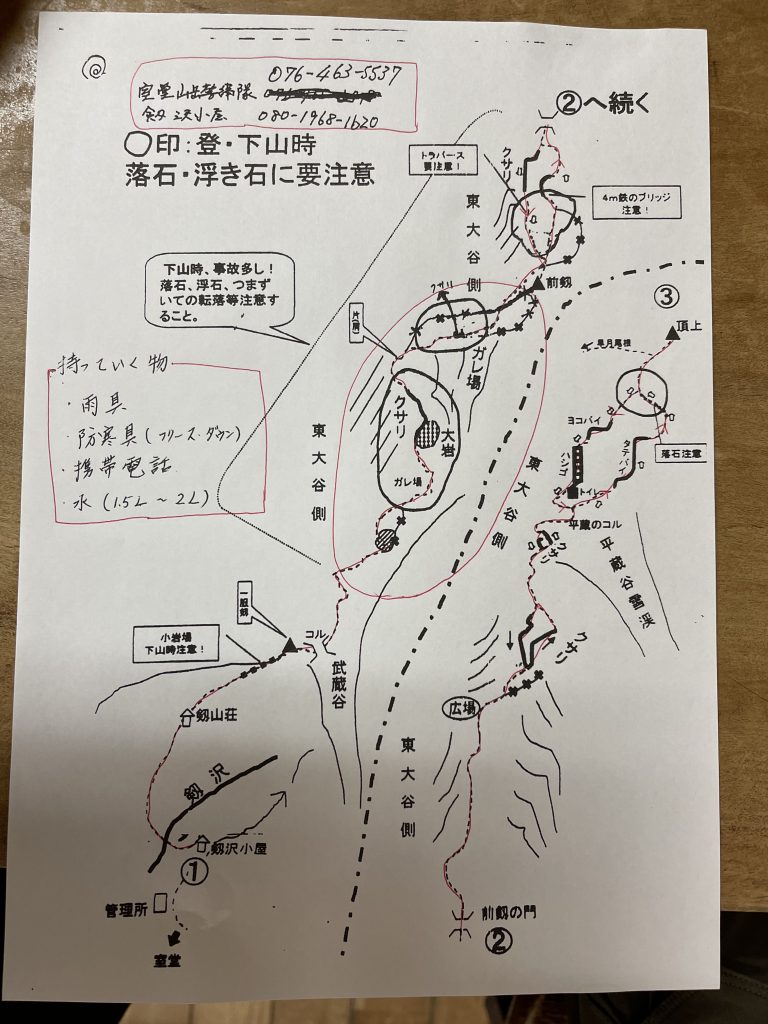 076-463-5537
室堂山岳警備隊
剱沢小屋 080-1968-1620
②へ続く
◯印:登・下山時
落石・浮き石に要注意
トラバース
要注意!
クサリ
4m鉄のブリッジ
注意!
東大谷側
下山時、事故多し!
落石、浮石、つまず
いての転落等注意す
ること。
クサリ
前剱
③
頂上
早月尾根
ガレ場
持っていく物
・雨具
・防寒具(フリース・ダウン)
・携帯電話
・水(1.5L~2L)
クサリ
大岩
ガレ場
東大谷側
東大谷側
ヨコバイ
ハシゴ
タテバイ
落石注意
トイレ
平蔵のコル
クサリ
平蔵谷雪渓
一服剱
コル
小岩場
下山時注意!
武蔵谷
クサリ
広場
剱山荘
剱沢
東大谷側
剱沢小屋
①
管理所
室堂
前剱の門
②